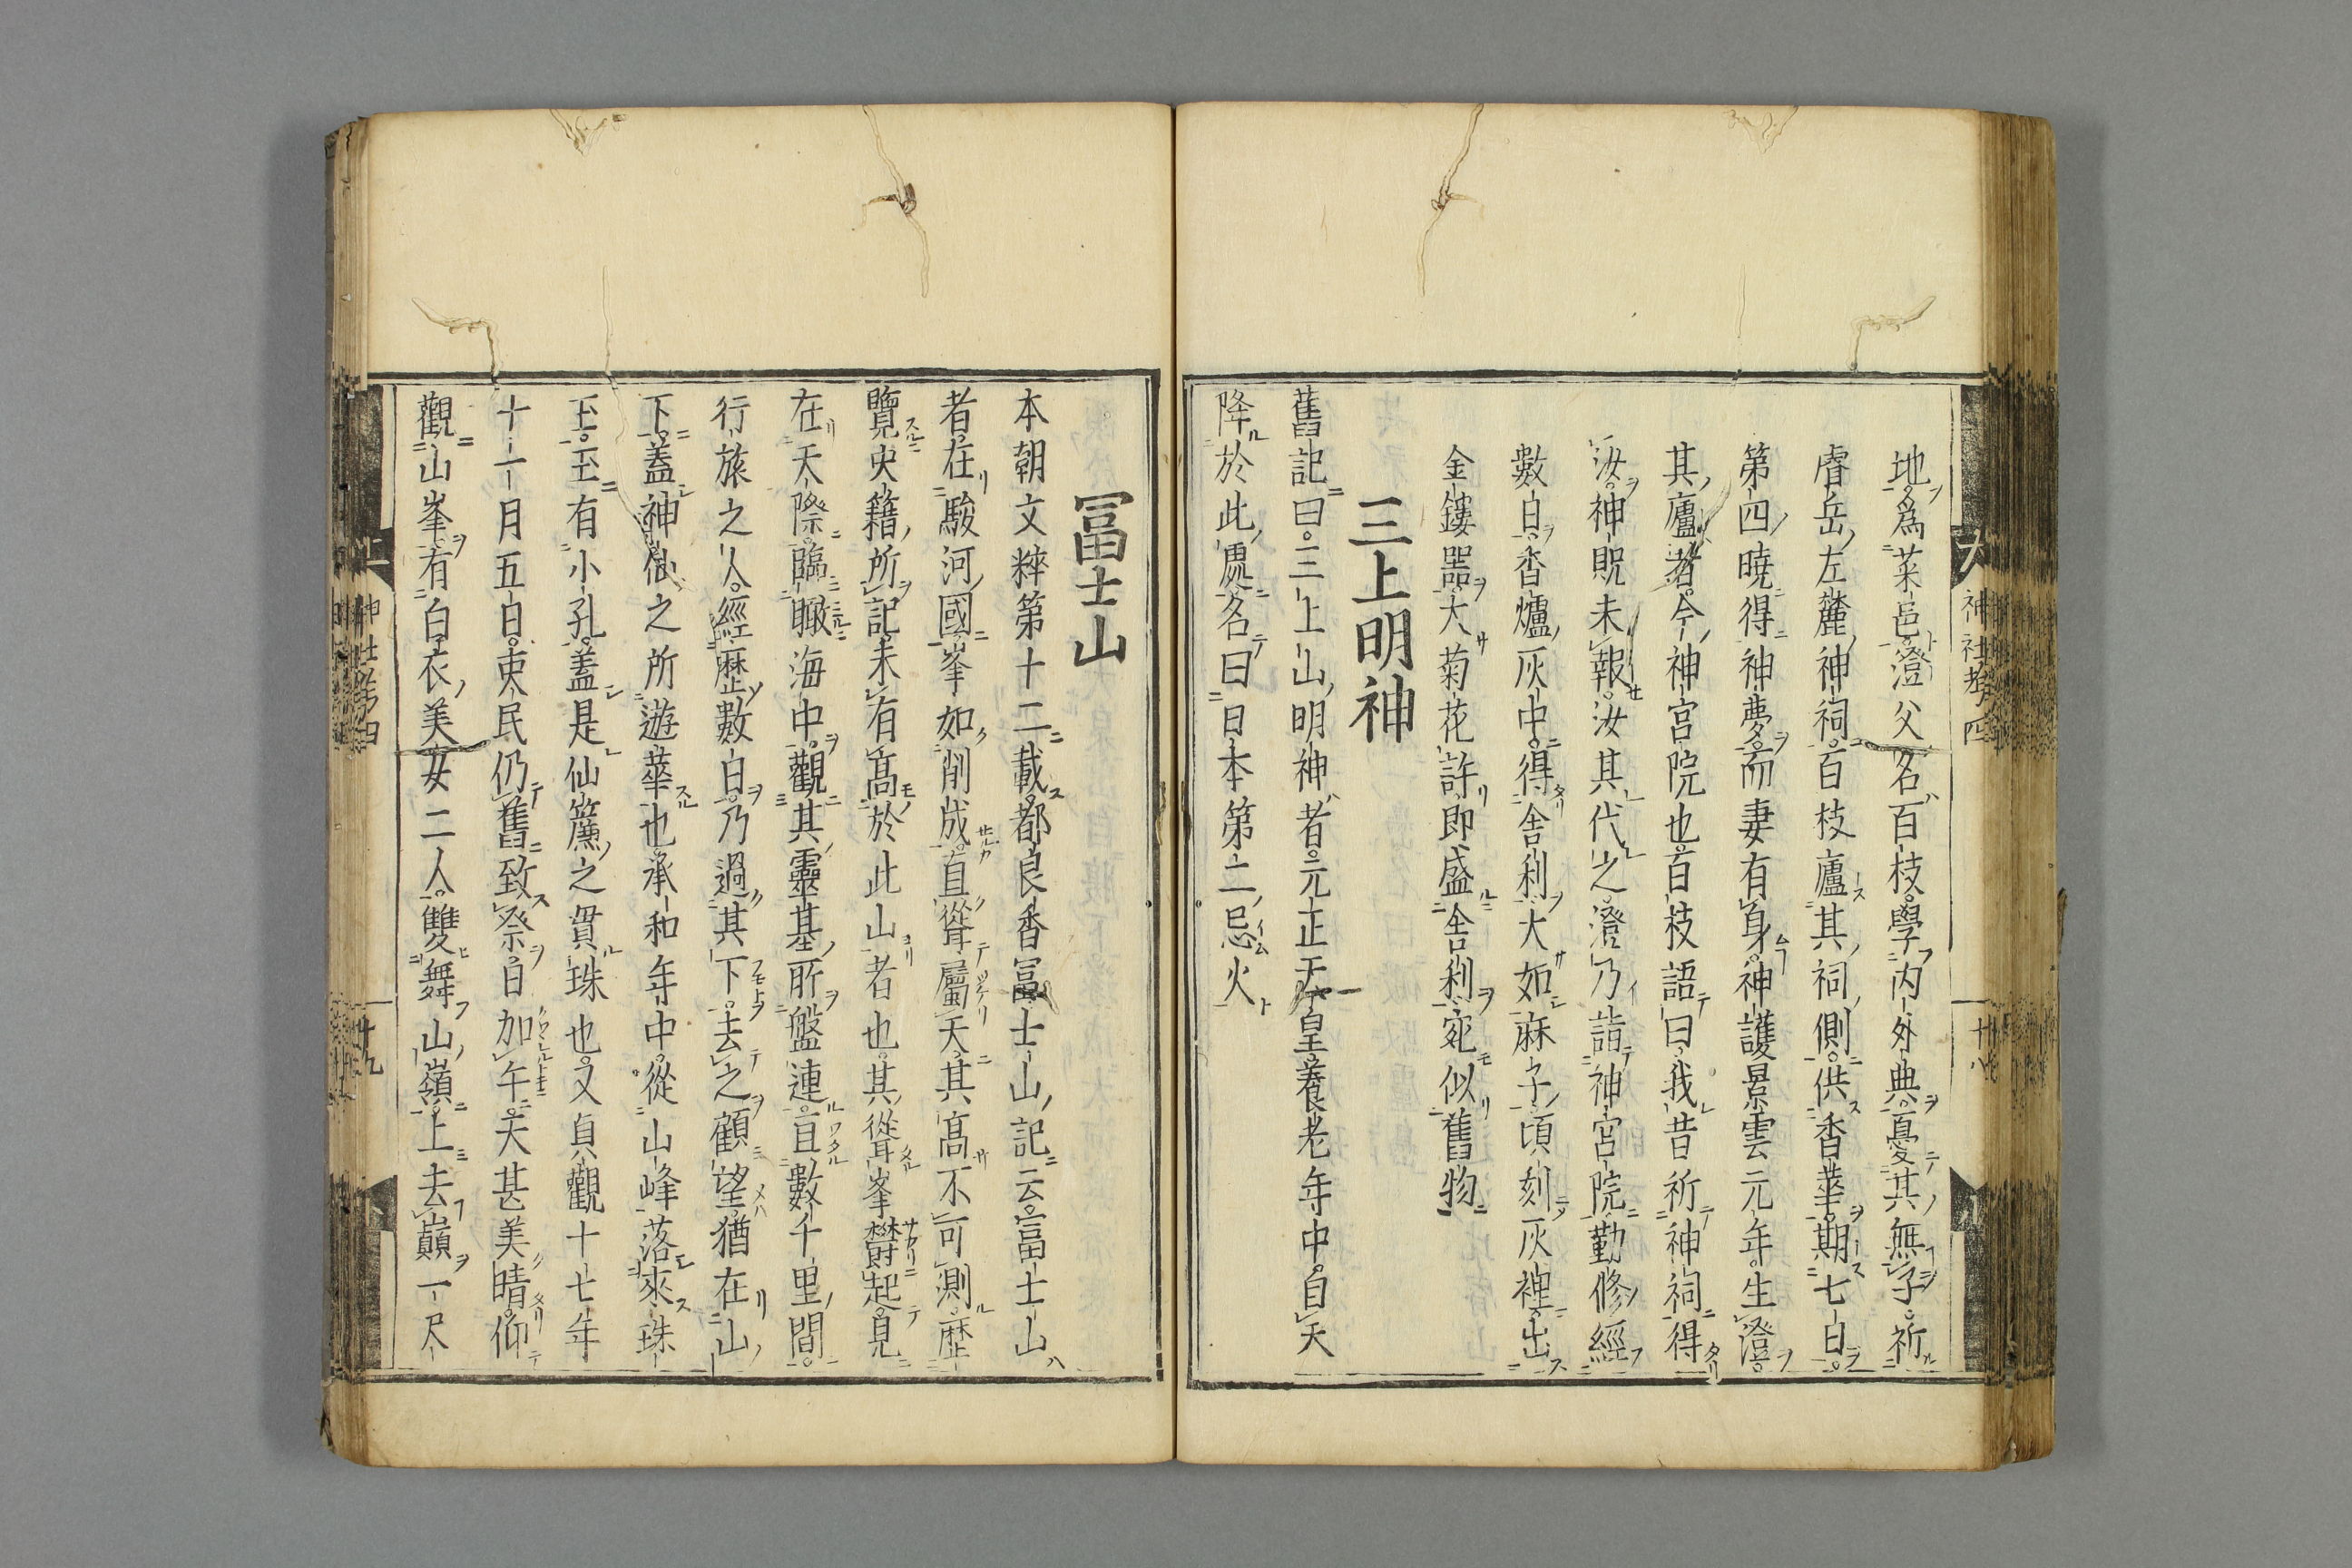 地名爲菜邑澄父名百枝學内外典憂其無子祈
睿岳左麓神祠百枝廬其祠側供香華期七日
第四曉得神夢而妻有身神護景雲元年生澄
其廬者今神宮院也百枝語曰我昔祈神祠得
汝神貺未報汝其代之澄乃詣神宮院勤修經
數日香爐灰中得舍利大如麻子頃刻灰裡出
金鏤器大菊花許即盛舍利宛似舊物
三上明神
舊記曰三上山明神者元正天皇養老年中自天
降於此處名曰日本第二忌火
神社考四
十八
冨士山
本朝文粹第十二載都良香冨士山記云富士山
者在駿河國峯如削成直聳屬天其高不可測歴
覽史籍所記未有高於此山者也其聳峯欝起見
在天際臨瞰海中觀其靈基所盤連亘數千里間
行旅之人經歴數日乃過其下去之顧望猶在山
下蓋神仙之所遊華也承和年中從山峰落來珠
玉玉有小孔蓋是仙簾之貫珠也又貞觀十七年
十一月五日吏民仍舊致祭日加午天甚美晴仰
觀山峯有白衣美女二人雙舞山嶺上去巓一尺
神社考四
十九